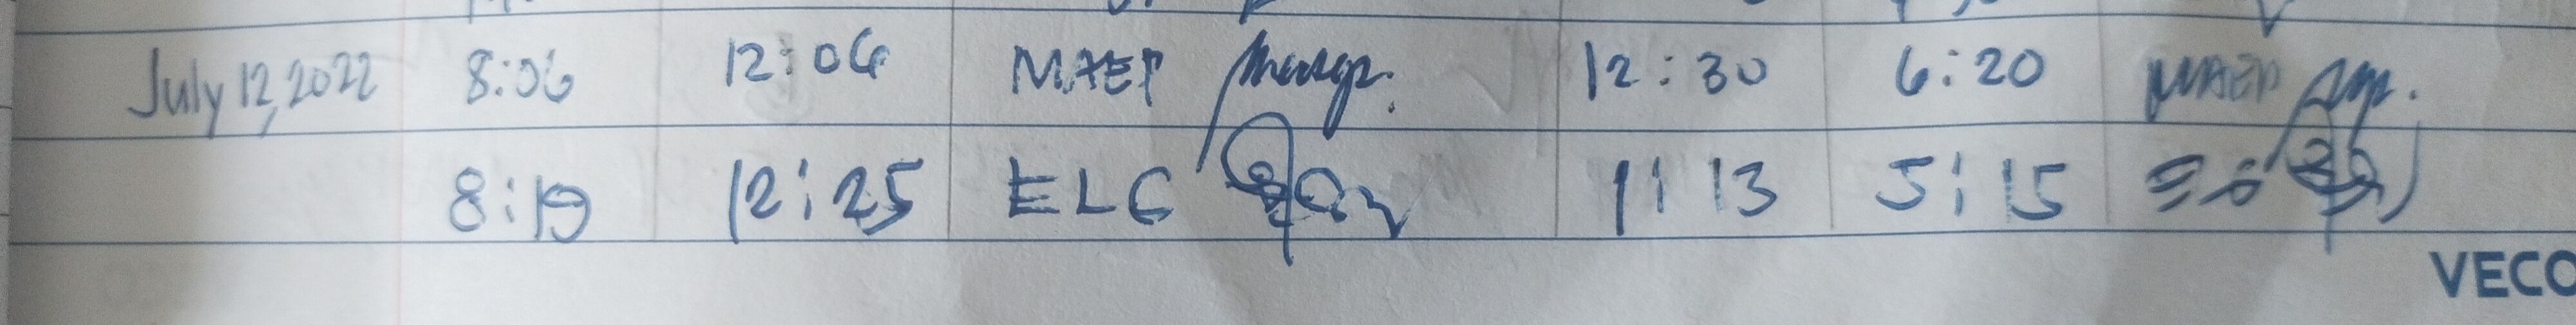 July 12, 2022 8:06 12:06 MAEP 12:30 6:20 MAEP
8:19 12:25 ELC 1:13 5:15
VECO